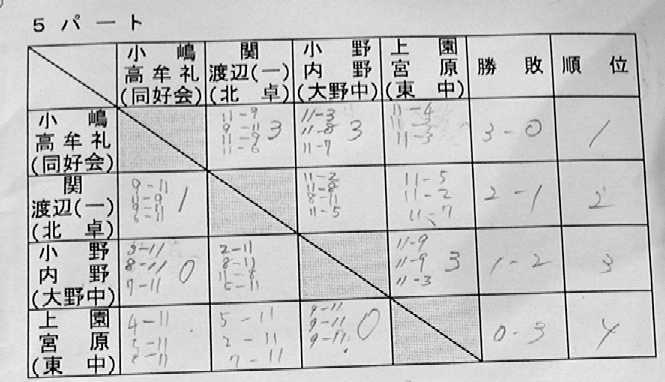 5 パート
小嶋 高牟礼 (同好会) 関 渡辺(一) (北卓) 小野 内野 (大野中) 上園 宮原 (東中) 勝敗 順位
小嶋
高牟礼
(同好会)
11-9
9-11
11-9
11-6
3
11-3
11-8
11-7
3
11-4
11-3
3-0
1
関
渡辺(一)
(北卓)
9-11
11-9
9-11
6-11
1
11-2
11-8
8-11
11-5
11-5
11-2
11-7
2-1
2
小野
内野
(大野中)
3-11
8-11
7-11
0
2-11
8-11
11-8
5-11
11-9
11-9
11-3
3
1-2
3
上園
宮原
(東中)
4-11
5-11
2-11
7-11
9-11
9-11
0
0-3
4